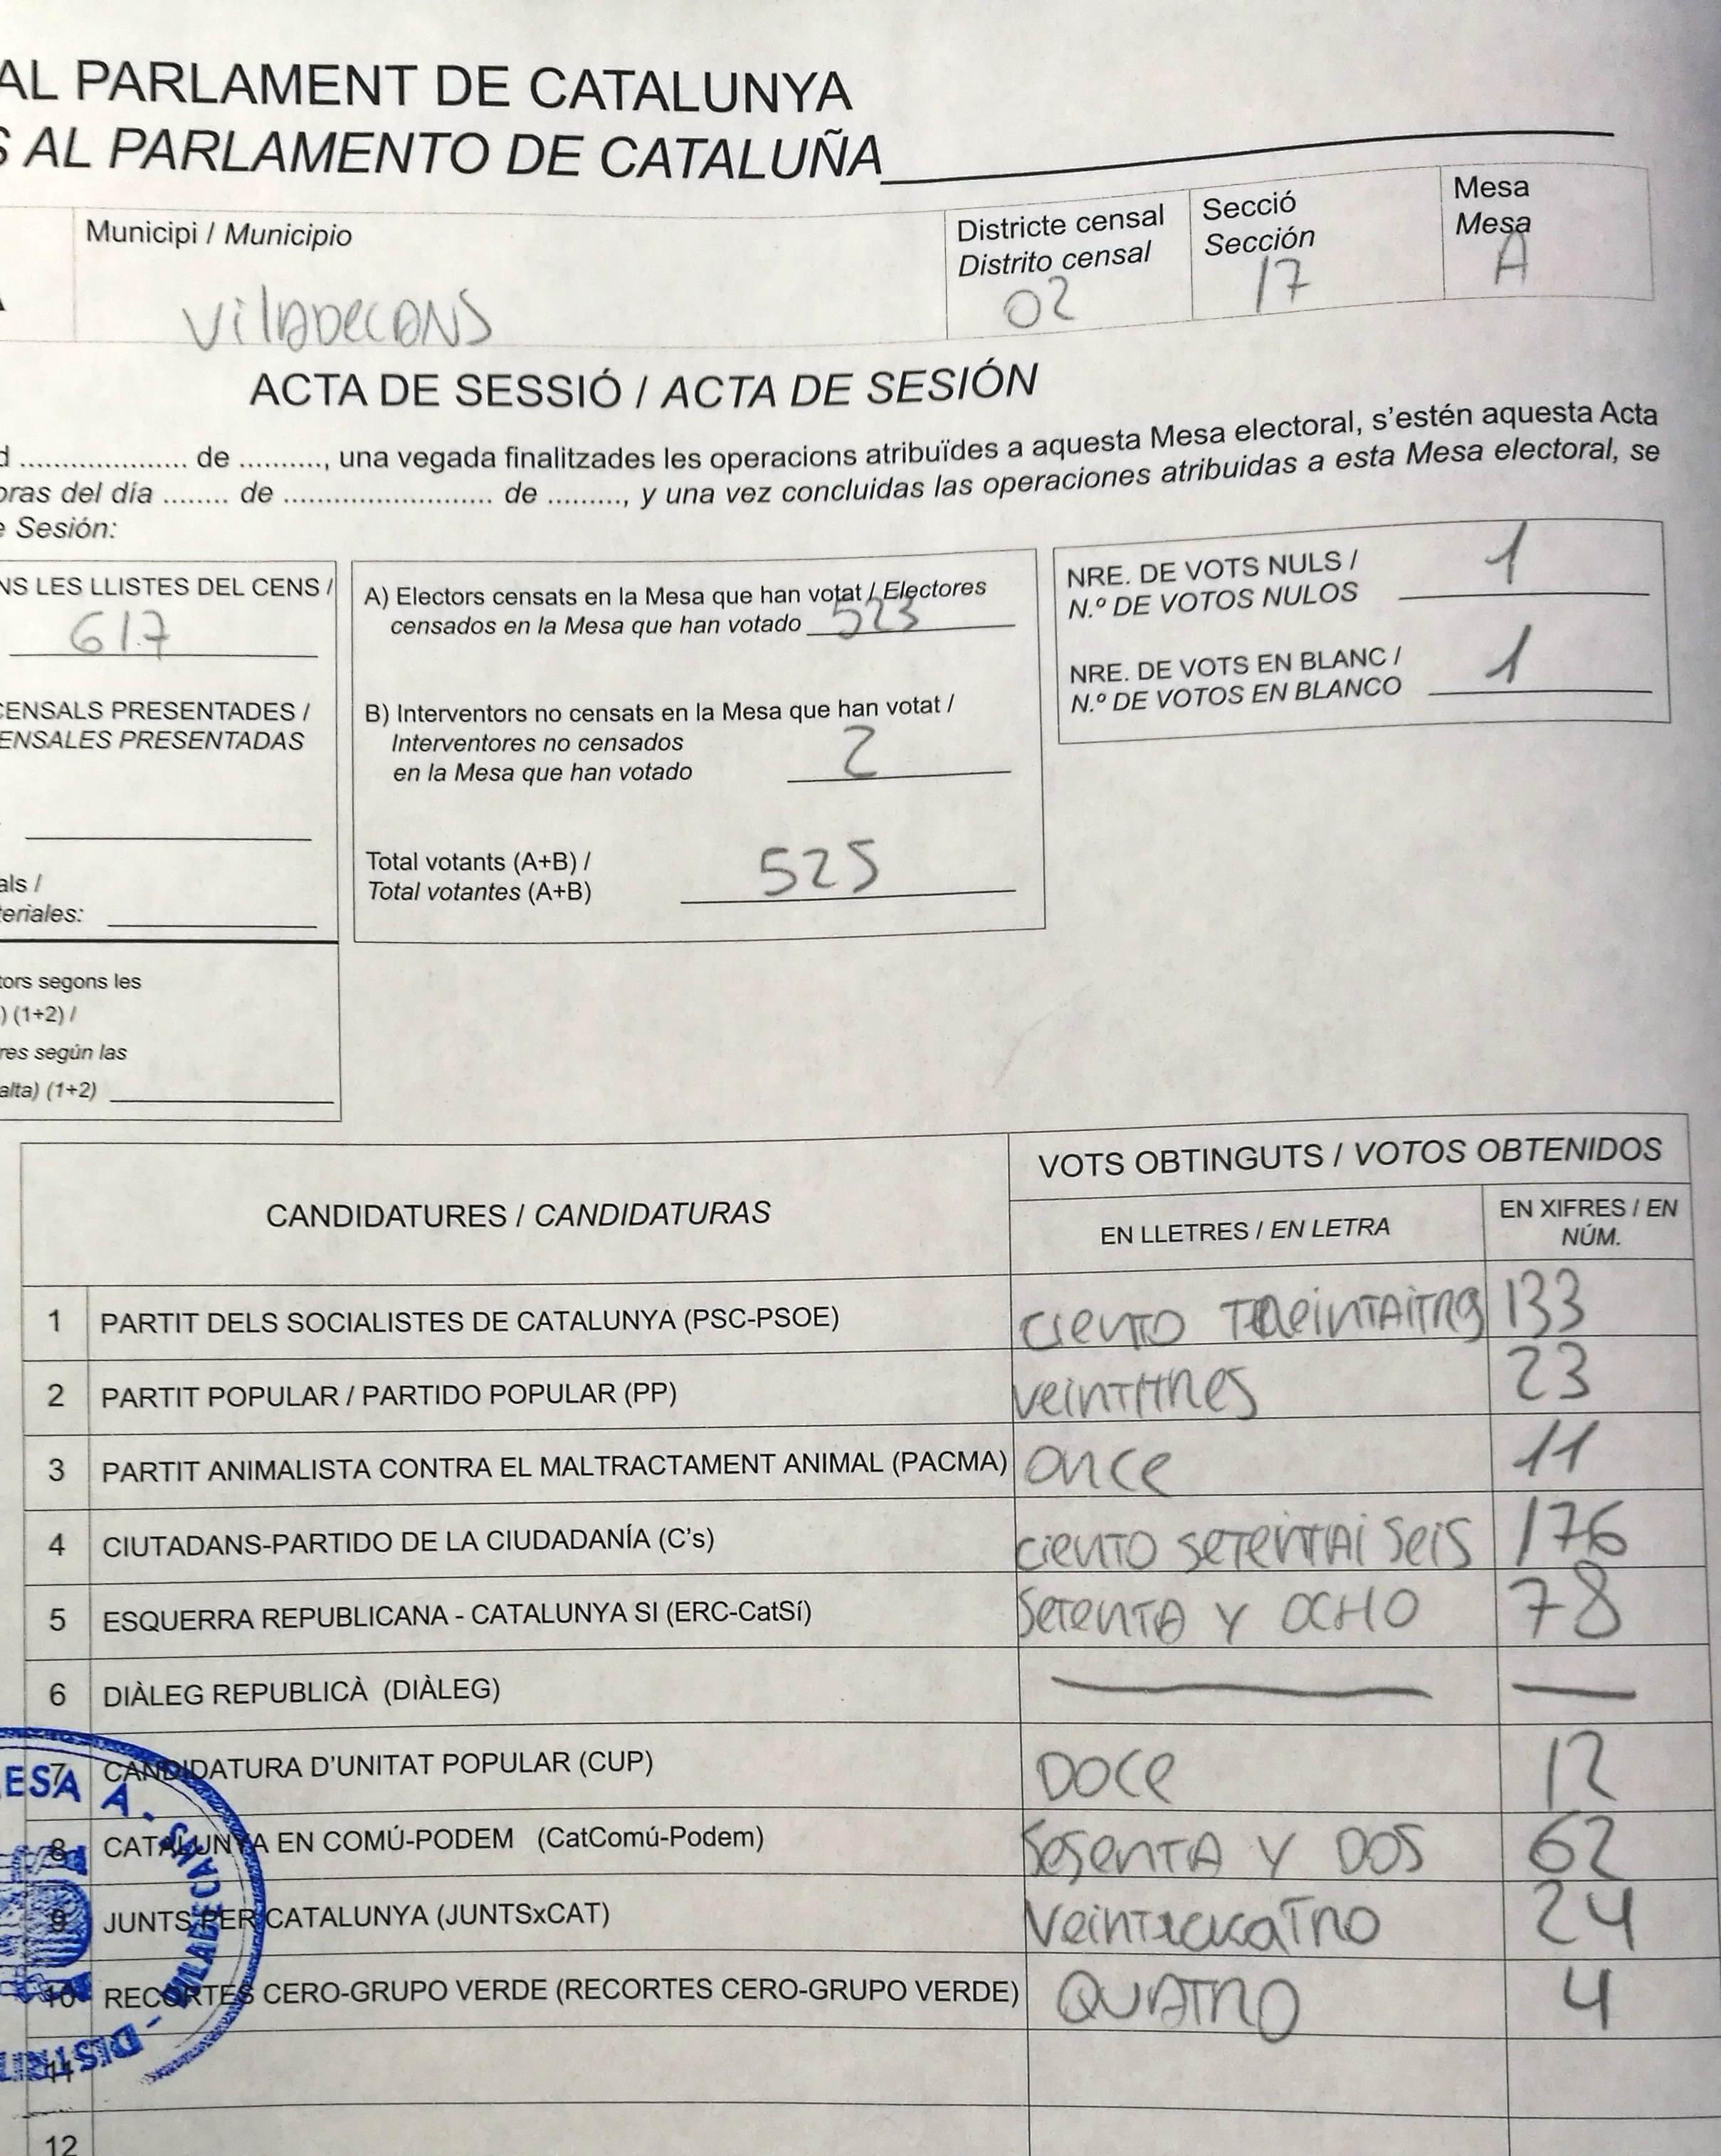 AL PARLAMENT DE CATALUNYA
S AL PARLAMENTO DE CATALUÑA
Municipi / Municipio
Viladecans
Districte censal
Distrito censal
02
Secció
Sección
17
Mesa
Mesa
A
ACTA DE SESSIÓ / ACTA DE SESIÓN
d ..................... de .........., una vegada finalitzades les operacions atribuïdes a aquesta Mesa electoral, s'estén aquesta Acta
oras del día ........ de ......................... de ........., y una vez concluidas las operaciones atribuidas a esta Mesa electoral, se
e Sesión:
NS LES LLISTES DEL CENS /
617
CENSALS PRESENTADES /
ENSALES PRESENTADAS
als /
teriales:
tors segons les
) (1+2) /
res según las
alta) (1+2)
A) Electors censats en la Mesa que han votat / Electores
censados en la Mesa que han votado 523
B) Interventors no censats en la Mesa que han votat /
Interventores no censados
en la Mesa que han votado 2
Total votants (A+B) /
Total votantes (A+B) 525
NRE. DE VOTS NULS /
N.º DE VOTOS NULOS 1
NRE. DE VOTS EN BLANC /
N.º DE VOTOS EN BLANCO 1
CANDIDATURES / CANDIDATURAS
VOTS OBTINGUTS / VOTOS OBTENIDOS
EN LLETRES / EN LETRA
EN XIFRES / EN
NÚM.
1 PARTIT DELS SOCIALISTES DE CATALUNYA (PSC-PSOE) ciento treintaitres 133
2 PARTIT POPULAR / PARTIDO POPULAR (PP) veintitres 23
3 PARTIT ANIMALISTA CONTRA EL MALTRACTAMENT ANIMAL (PACMA) once 11
4 CIUTADANS-PARTIDO DE LA CIUDADANÍA (C's) ciento setentai seis 176
5 ESQUERRA REPUBLICANA - CATALUNYA SI (ERC-CatSí) Setenta y OCHO 78
6 DIÀLEG REPUBLICÀ (DIÀLEG) — —
7 CANDIDATURA D'UNITAT POPULAR (CUP) DOCe 12
8 CATALUNYA EN COMÚ-PODEM (CatComú-Podem) Sesenta y DOS 62
9 JUNTS PER CATALUNYA (JUNTSxCAT) 24
10 RECORTES CERO-GRUPO VERDE (RECORTES CERO-GRUPO VERDE) QUATRO 4
11
12
ESA A. VILADECANS - DISTRI